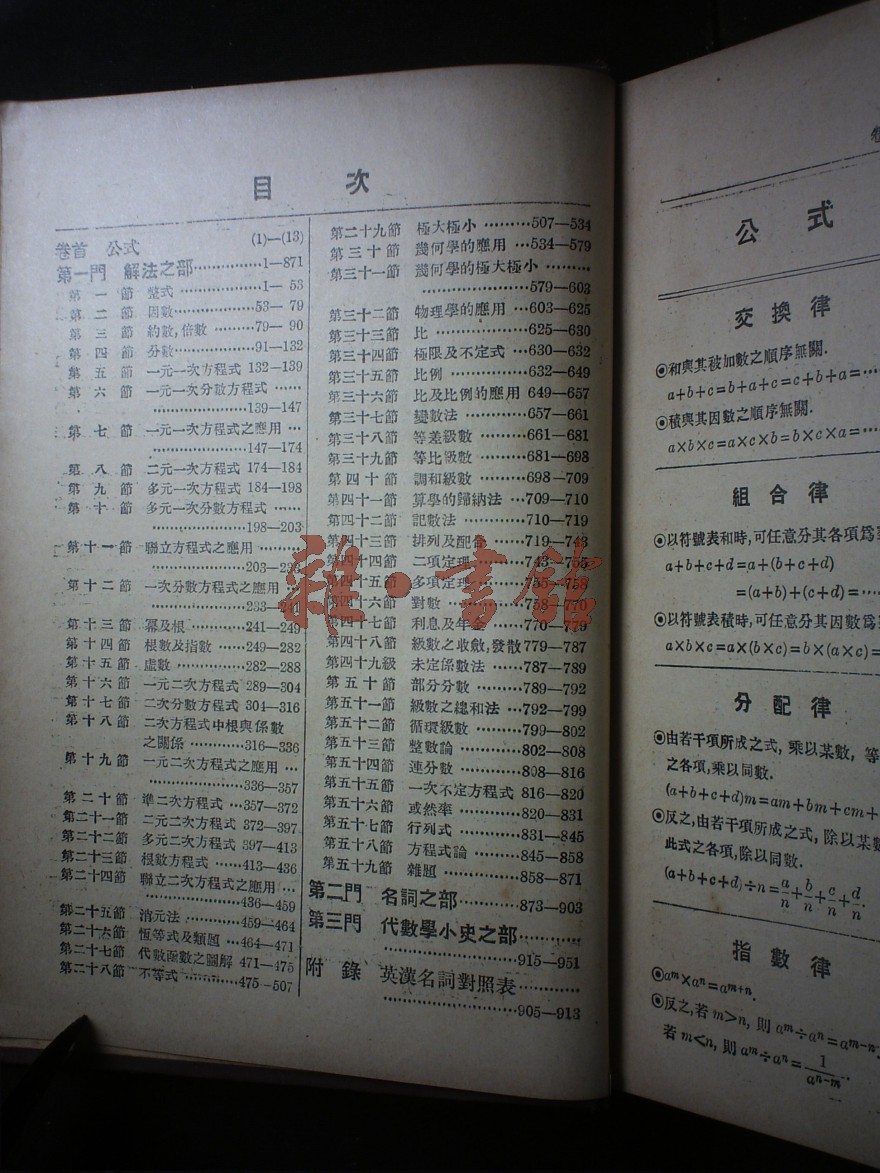 目 次
卷首 公式 (1)—(13)
第一門 解法之部…………1—871
第一節 整式 ………………1— 53
第二節 因數………………53— 79
第三節 約數,倍數 ………79— 90
第四節 分數………………91—132
第五節 一元一次方程式 132—139
第六節 一元一次分數方程式 ……
………………139—147
第七節 一元一次方程式之應用 …
………………147—174
第八節 二元一次方程式 174—184
第九節 多元一次方程式 184—198
第十節 多元一次分數方程式 ……
………………198—203
第十一節 聯立方程式之應用 ………
………………203—233
第十二節 一次分數方程式之應用 …
………………233—241
第十三節 冪及根…………241—249
第十四節 根數及指數 ……249—282
第十五節 虛數……………282—288
第十六節 一元二次方程式 289—304
第十七節 二次分數方程式 304—316
第十八節 二次方程式中根與係數
之關係…………316—336
第十九節 一元二次方程式之應用 …
………………336—357
第二十節 準二次方程式 …357—372
第二十一節 二元二次方程式 372—397
第二十二節 多元二次方程式 397—413
第二十三節 根數方程式 ……413—436
第二十四節 聯立二次方程式之應用 …
………………436—459
第二十五節 消元法…………459—464
第二十六節 恆等式及類題 …464—471
第二十七節 代數函數之圖解 471—475
第二十八節 不等式…………475—507
第二十九節 極大極小 ………507—534
第三十節 幾何學的應用 …534—579
第三十一節 幾何學的極大極小 ………
………………579—603
第三十二節 物理學的應用 …603—625
第三十三節 比………………625—630
第三十四節 極限及不定式 …630—632
第三十五節 比例……………632—649
第三十六節 比及比例的應用 649—657
第三十七節 變數法…………657—661
第三十八節 等差級數 ………661—681
第三十九節 等比級數 ………681—698
第四十節 調和級數 ………698—709
第四十一節 算學的歸納法 …709—710
第四十二節 記數法…………710—719
第四十三節 排列及配合 ……719—743
第四十四節 二項定理 ………743—755
第四十五節 多項定理 ………755—758
第四十六節 對數 ……………758—770
第四十七節 利息及年金 ……770—779
第四十八節 級數之收斂,發散779—787
第四十九級 未定係數法 ……787—789
第五十節 部分分數 ………789—792
第五十一節 級數之總和法 …792—799
第五十二節 循環級數 ………799—802
第五十三節 整數論…………802—808
第五十四節 連分數…………808—816
第五十五節 一次不定方程式 816—820
第五十六節 或然率…………820—831
第五十七節 行列式…………831—845
第五十八節 方程式論………845—858
第五十九節 雜題……………858—871
第二門 名詞之部…………873—903
第三門 代數學小史之部…………
………………915—951
附錄 英漢名詞對照表…………
………………905—913
雜·書館
公式
交換律
◎和與其被加數之順序無關.
a+b+c=b+a+c=c+b+a=…
◎積與其因數之順序無關.
a×b×c=a×c×b=b×c×a=…
組合律
◎以符號表和時,可任意分其各項爲
a+b+c+d=a+(b+c+d)
=(a+b)+(c+d)=……
◎以符號表積時,可任意分其因數爲
a×b×c=a×(b×c)=b×(a×c)=
分配律
◎由若干項所成之式, 乘以某數, 等
之各項,乘以同數.
(a+b+c+d)m=am+bm+cm+
◎反之,由若干項所成之式, 除以某數
此式之各項,除以同數.
(a+b+c+d)÷n=a/n+b/n+c/n+d/n.
指數律
◎aᵐ×aⁿ=aᵐ⁺ⁿ.
◎反之,若 m>n, 則 aᵐ÷aⁿ=aᵐ⁻ⁿ
若 m<n, 則 aᵐ÷aⁿ=1/aⁿ⁻ᵐ.